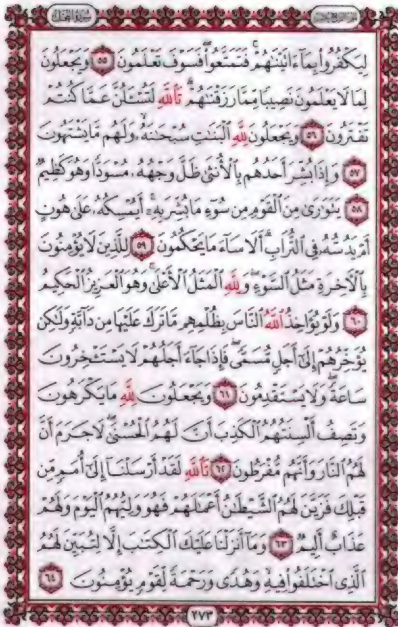 سُورَةُ النَّحْلِ
الجزء الرابع عشر
لِيَكْفُرُوا۟ بِمَآ ءَاتَيْنَٰهُمْ ۚ فَتَمَتَّعُوا۟ ۖ فَسَوْفَ تَعْلَمُونَ ٥٥ وَيَجْعَلُونَ
لِمَا لَا يَعْلَمُونَ نَصِيبًا مِّمَّا رَزَقْنَٰهُمْ ۗ تَٱللَّهِ لَتُسْـَٔلُنَّ عَمَّا كُنتُمْ
تَفْتَرُونَ ٥٦ وَيَجْعَلُونَ لِلَّهِ ٱلْبَنَٰتِ سُبْحَٰنَهُۥ ۙ وَلَهُم مَّا يَشْتَهُونَ
٥٧ وَإِذَا بُشِّرَ أَحَدُهُم بِٱلْأُنثَىٰ ظَلَّ وَجْهُهُۥ مُسْوَدًّا وَهُوَ كَظِيمٌ
٥٨ يَتَوَٰرَىٰ مِنَ ٱلْقَوْمِ مِن سُوٓءِ مَا بُشِّرَ بِهِۦٓ ۚ أَيُمْسِكُهُۥ عَلَىٰ هُونٍ
أَمْ يَدُسُّهُۥ فِى ٱلتُّرَابِ ۗ أَلَا سَآءَ مَا يَحْكُمُونَ ٥٩ لِلَّذِينَ لَا يُؤْمِنُونَ
بِٱلْءَاخِرَةِ مَثَلُ ٱلسَّوْءِ ۖ وَلِلَّهِ ٱلْمَثَلُ ٱلْأَعْلَىٰ ۚ وَهُوَ ٱلْعَزِيزُ ٱلْحَكِيمُ
٦٠ وَلَوْ يُؤَاخِذُ ٱللَّهُ ٱلنَّاسَ بِظُلْمِهِم مَّا تَرَكَ عَلَيْهَا مِن دَآبَّةٍ وَلَٰكِن
يُؤَخِّرُهُمْ إِلَىٰٓ أَجَلٍ مُّسَمًّى ۖ فَإِذَا جَآءَ أَجَلُهُمْ لَا يَسْتَـْٔخِرُونَ
سَاعَةً ۖ وَلَا يَسْتَقْدِمُونَ ٦١ وَيَجْعَلُونَ لِلَّهِ مَا يَكْرَهُونَ
وَتَصِفُ أَلْسِنَتُهُمُ ٱلْكَذِبَ أَنَّ لَهُمُ ٱلْحُسْنَىٰ ۖ لَا جَرَمَ أَنَّ
لَهُمُ ٱلنَّارَ وَأَنَّهُم مُّفْرَطُونَ ٦٢ تَٱللَّهِ لَقَدْ أَرْسَلْنَآ إِلَىٰٓ أُمَمٍ مِّن
قَبْلِكَ فَزَيَّنَ لَهُمُ ٱلشَّيْطَٰنُ أَعْمَٰلَهُمْ فَهُوَ وَلِيُّهُمُ ٱلْيَوْمَ وَلَهُمْ
عَذَابٌ أَلِيمٌ ٦٣ وَمَآ أَنزَلْنَا عَلَيْكَ ٱلْكِتَٰبَ إِلَّا لِتُبَيِّنَ لَهُمُ
ٱلَّذِى ٱخْتَلَفُوا۟ فِيهِ ۙ وَهُدًى وَرَحْمَةً لِّقَوْمٍ يُؤْمِنُونَ ٦٤
٢٧٣